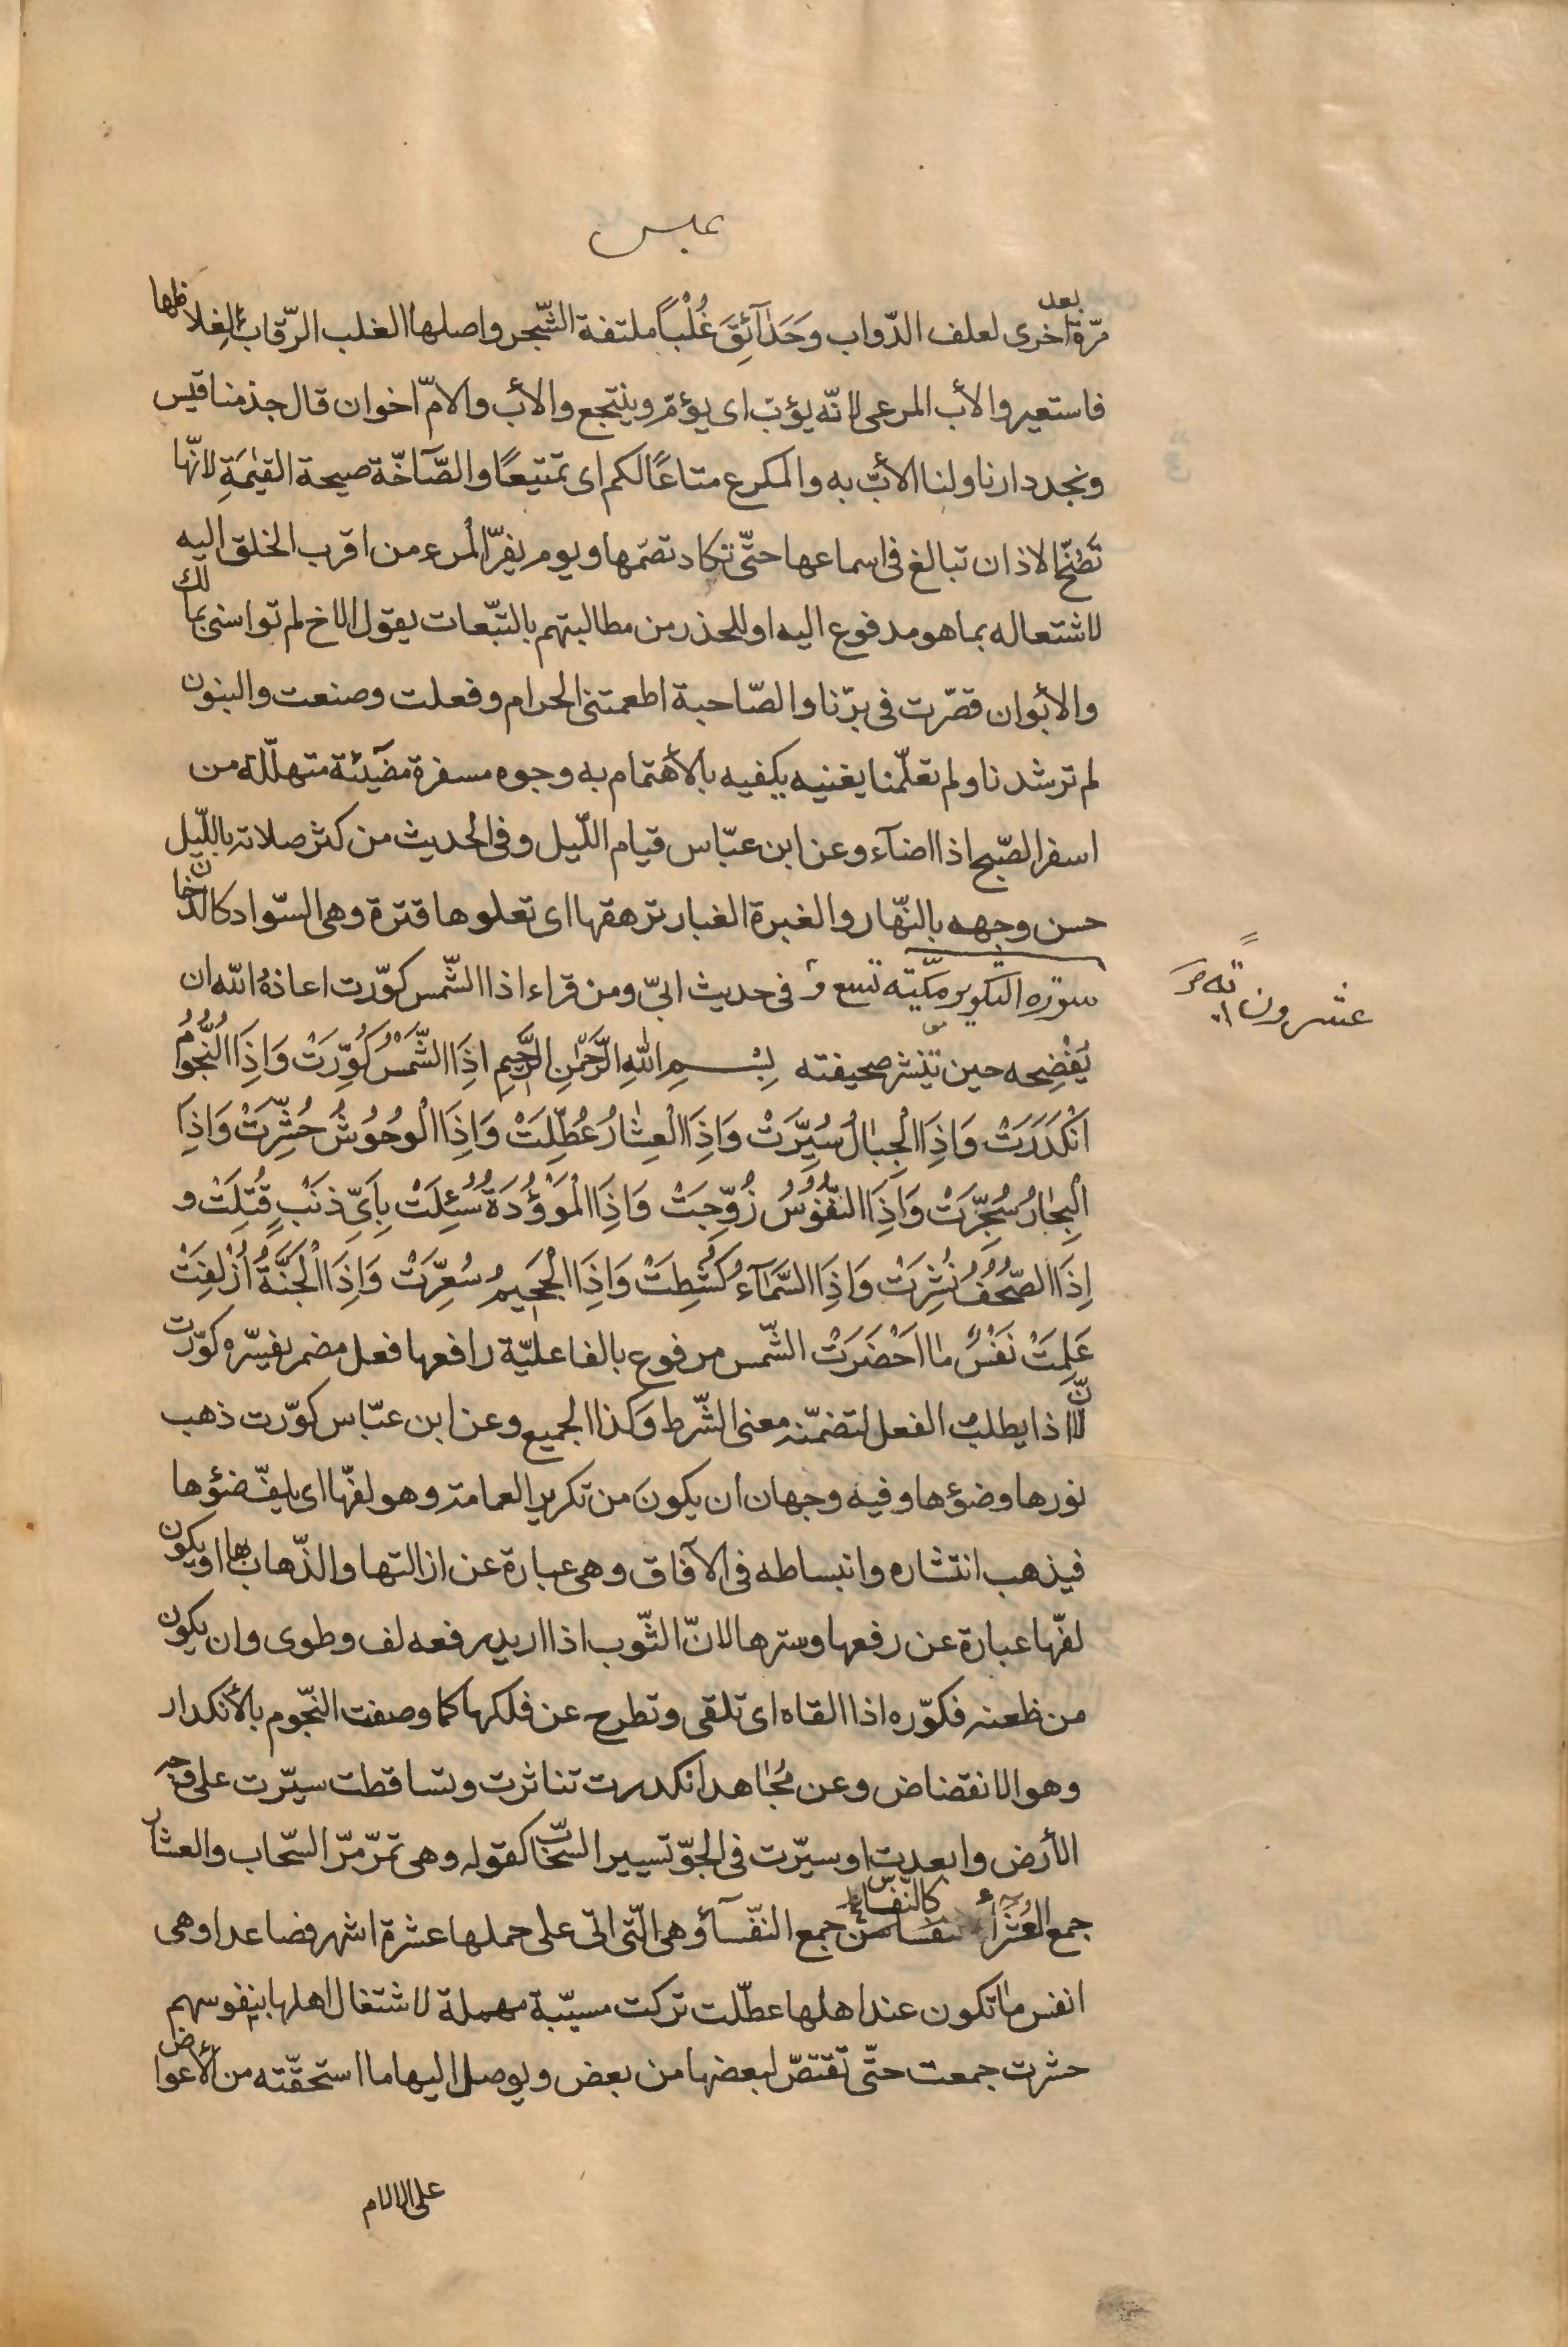 عبس
مرّة بعد اخرى لعلف الدّواب وَحَدَآئِقَ غُلْباً ملتفة الشّجر واصلها الغلب الرّقاب الغِلاظها
فاستعير والأب المرعى لانّه يؤبّ اى يؤمّ وينتجع والأب والامّ اخوان قال جذمنا قيس
ونجد دارنا ولنا الأبّ به والمكرع متاعًا لكم اى تمتيعًا والصّآخّة صيحة القيٰمَةِ لانّها
تَصُخّ الاذان تبالغ فى اسماعها حتّى تكاد تصمّها ويوم يفرّ المرء من اقرب الخلق اليه
لاشتعاله بما هو مدفوع اليه او للحذر من مطالبتهم بالتبّعات يقول الاخ لم تواسنى بمالك
والأبوان قصّرت فى برّنا والصّاحبة اطعمتنى الحرام وفعلت وصنعت والبنون
لم ترشدنا ولم تعلّمنا يغنيه يكفيه بالأهتمام به وجوه مسفرة مضيئة متهلّلة من
اسفر الصّبح اذا اضآء وعن ابن عبّاس قيام اللّيل وفى الحديث من كثر صلاته باللّيل
حسن وجهه بالنّهار والغبرة الغبار ترهقها اى تعلوها قترة وهى السّواد كالدّخان
سورة التكوير مكّيّة تسع و فى حديث ابىّ ومن قراء اذا الشّمس كوّرت اعاذهُ الله ان
عشرون اية
يَفْضِحه حين تنشر صحيفته بِسْمِ اللهِ الرَّحْمٰنِ الرَّحِيمِ اِذَا الشَّمْسُ كُوِّرَتْ وَاِذَا النُّجُومُ
انْكَدَرَتْ وَاِذَا الْجِبٰالُ سُيِّرَتْ وَاِذَا الْعِشٰارُ عُطِّلَتْ وَاِذَا الْوُحُوشُ حُشِّرَتْ وَاِذَا
الْبِحٰارُ سُجِّرَتْ وَاِذَا النُّفُوسُ زُوِّجَتْ وَاِذَا الْمَوْؤُدَةُ سُئِلَتْ بِاَىِّ ذَنْبٍ قُتِلَتْ و
اِذَا الصُّحُفُ نُشِرَتْ وَاِذَا السَّمَآءُ كُشِطَتْ وَاِذَا الْجَحِيمُ سُعِّرَتْ وَاِذَا الْجَنَّةُ اُزْلِفَتْ
عَلِمَتْ نَفْسٌ مٰا اَحْضَرَتْ الشّمس مرفوع بالفاعليّة رافعها فعل مضمر يفسّره كوّرت
لانّ اذا يطلب الفعل لتضمّنه معنى الشّرط وكذا الجميع وعن ابن عبّاس كوّرت ذهب
نورها وضؤها وفيه وجهان ان يكونَ من تكرير العمامة وهو لفّها اى يلفّ ضؤها
فيذهب انتشاره وانبساطه فى الآفاق وهى عبارة عن ازالتها والذّهاب بها او يكون
لفّها عبارة عن رفعها وسترها لانّ الثّوب اذا اريد رفعه لف وطوى وان يكون
من ظعنه فكوّره اذا القاه اى تلقى وتطرح عن فلكها كما وصفت النّجوم بالأنكدار
وهو الانقضاض وعن مُجٰاهد انكدرت تناثرت وتساقطت سيّرت على وجه
الأرض وابعدت او سيّرت فى الجوّ تسيير السّحاب كقوله وهى تمرّ مرّ السّحاب والعشار
جمع العُشَرَاء كالنّفاس جمع النّفسآؤ هى الّتى اتى على حملها عشرة اشهر فضاعدا وهى
انفس مٰا تكون عند اهلها عطّلت تركت مسيّبة مهملة لاشتغال اهلها بنفوسهم
حشرت جمعت حتّى تقتصّ لبعضها من بعض ويوصل اليها ما استحقّته من الأعواض
على الالام